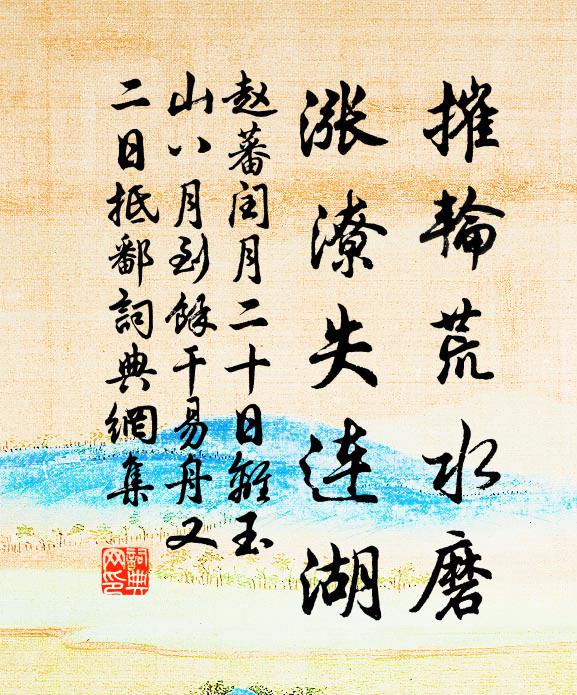 摧輪荒水磨
漲潦失連湖
赵蕃闰月二十日離玉
山八月到餘干易舟又
二日抵鄱詞典網集
詞典网印